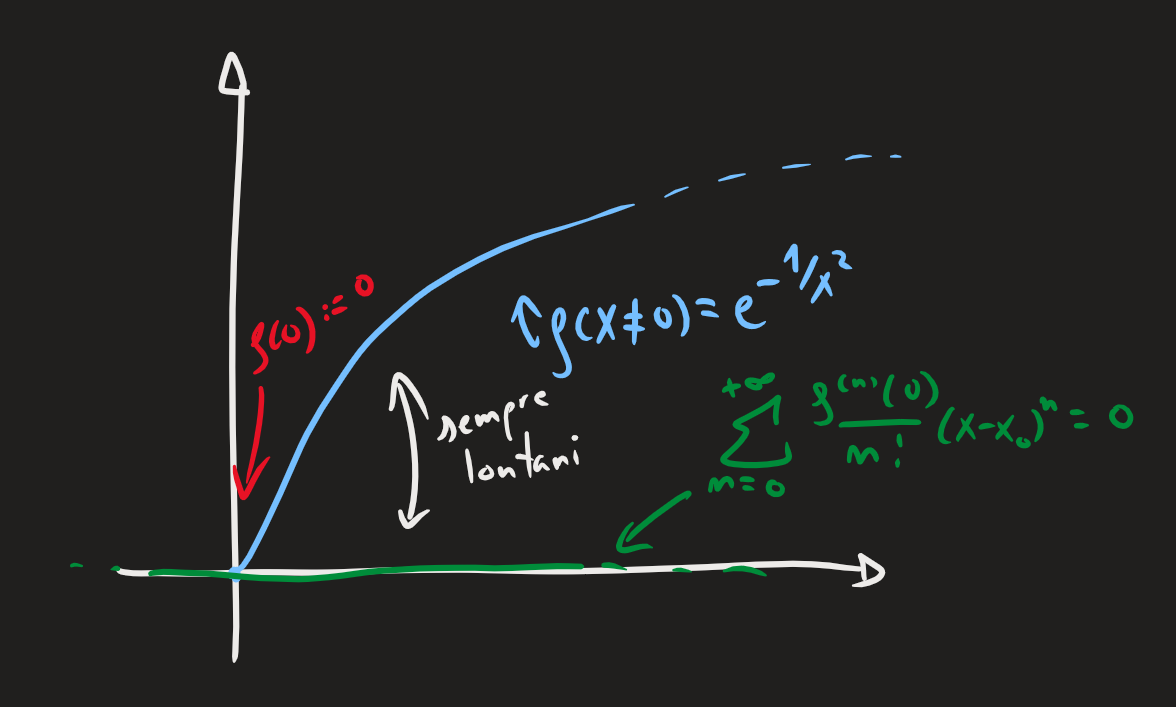 f(0) := 0
f(x≠0) = e^{-1/x^2}
sempre
lontani
\sum_{n=0}^{+∞} \frac{f^{(n)}(0)}{n!} (x-x_0)^n = 0